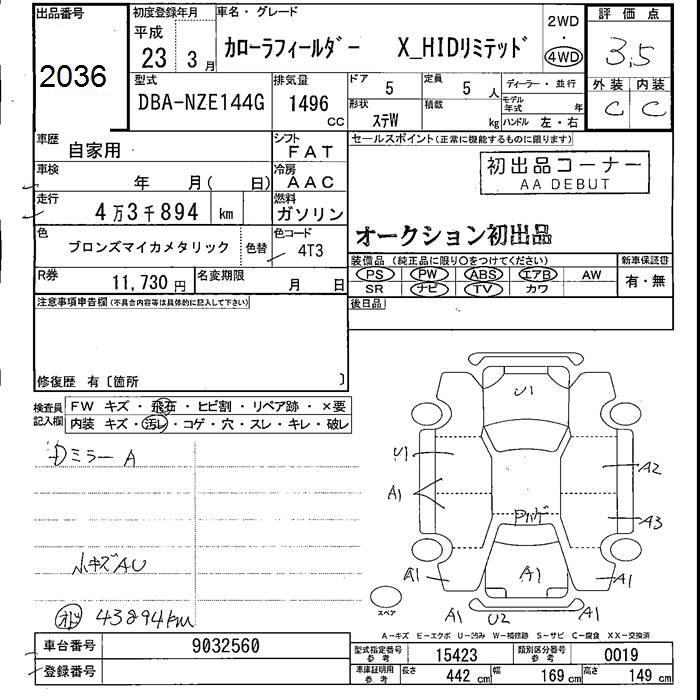 出品番号
2036
初度登録年月
平成
23 3月
車名・グレード
カローラフィールダー X_HIDリミテッド
2WD
・
4WD
評価点
3.5
外装 内装
C C
型式
DBA-NZE144G
排気量
1496
CC
ドア
5
定員
5 人
形状
ステW
積載
kg
ディーラー・並行
モデル年式 年
ハンドル 左・右
車歴
自家用
シフト
FAT
車検
年 月( 日)
冷房
AAC
走行
4万3千894 km
燃料
ガソリン
色
ブロンズマイカメタリック
色替
色コード
4T3
R券
11,730円
名変期限
月 日
セールスポイント(正常に機能するものに限ります)
初出品コーナー
AA DEBUT
オークション初出品
装備品(純正品に限り○をつけてください)
新車保証書
PS PW ABS エアB AW
有・無
SR ナビ TV カワ
後日品
注意事項申告欄(不具合内容等は具体的に記入して下さい)
修復歴 有〔箇所 〕
検査員記入欄
FW キズ・飛石・ヒビ割・リペア跡・×要
内装 キズ・汚レ・コゲ・穴・スレ・キレ・破レ
ミラーA
小キズAU
オド 43894km
U1
U1
A1
A2
A3
A1
A1
A1
A1
U2
A1
スペア
A-キズ E-エクボ U-凹み W-補修跡 S-サビ C-腐食 XX-交換済
車台番号
9032560
登録番号
型式指定番号
参考
15423
類別区分番号
参考
0019
車庫証明用
参考
長さ
442 cm
幅
169 cm
高さ
149 cm